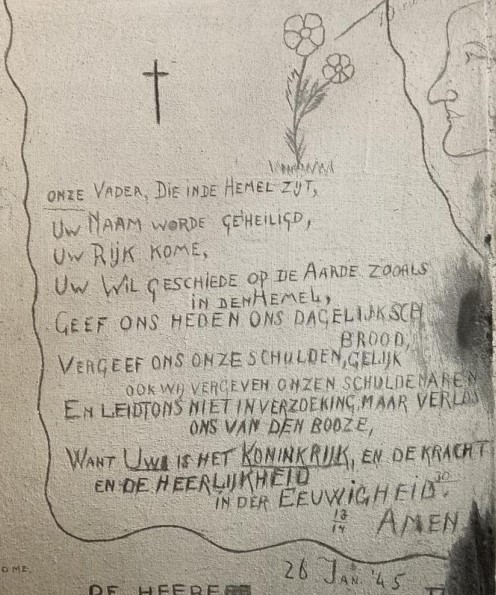 ONZE VADER, DIE IN DE HEMEL ZIJT,
UW NAAM WORDE GEHEILIGD,
UW RIJK KOME,
UW WIL GESCHIEDE OP DE AARDE ZOOALS
IN DEN HEMEL,
GEEF ONS HEDEN ONS DAGELIJKSCH
BROOD,
VERGEEF ONS ONZE SCHULDEN, GELIJK
OOK WIJ VERGEVEN ONZEN SCHULDENAREN
EN LEIDT ONS NIET IN VERZOEKING, MAAR VERLOS
ONS VAN DEN BOOZE,
WANT UW IS HET KONINKRIJK, EN DE KRACHT
EN DE HEERLIJKHEID
IN DER EEUWIGHEID.
13
14
AMEN
26 JAN. '45
OME.
DE HEERE